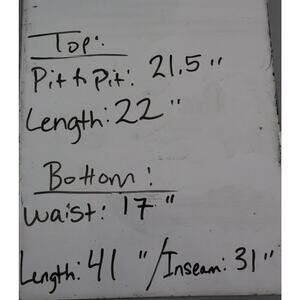 Top:
Pit to Pit: 21.5"
Length: 22"
Bottom:
Waist: 17"
Length: 41"/Inseam: 31"